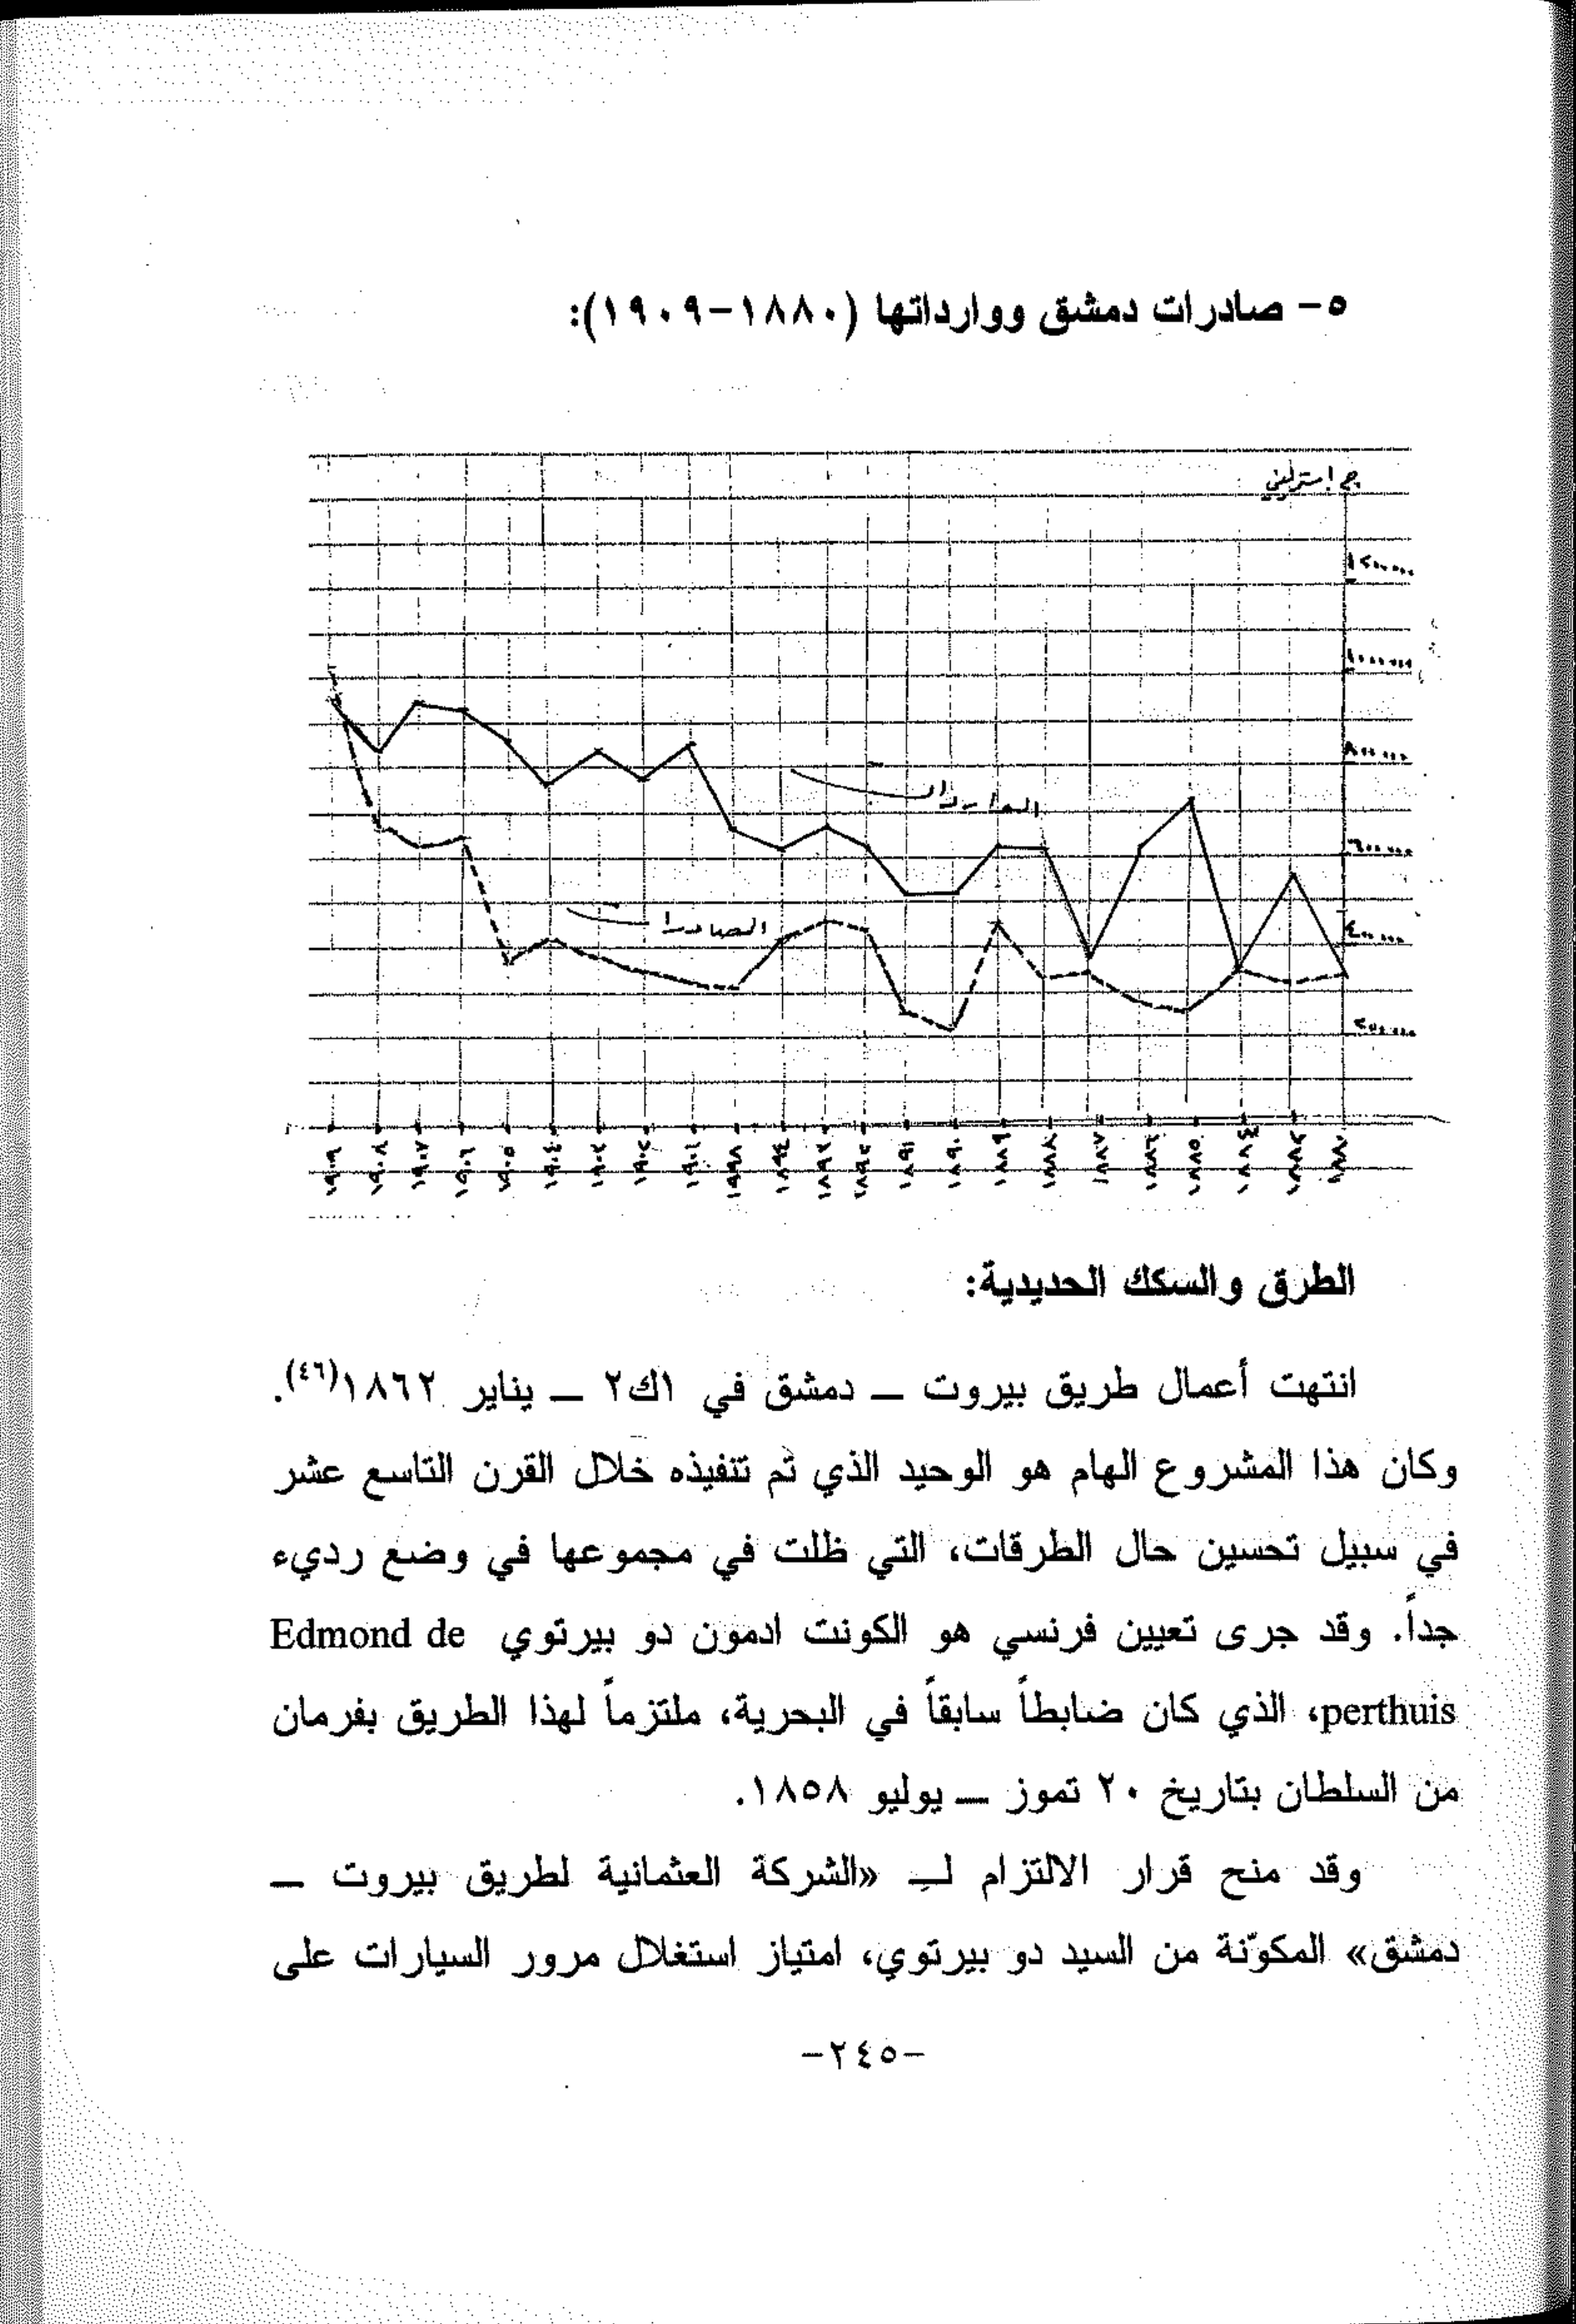 ٥- صادرات دمشق ووارداتها (١٨٨٠-١٩٠٩):
ج استرليني
١٢٠٠٠٠٠
١٠٠٠٠٠٠
٨٠٠٠٠٠
٦٠٠٠٠٠
٤٠٠٠٠٠
٢٠٠٠٠٠
الواردات
الصادرات
١٨٨٠ ١٨٨٢ ١٨٨٤ ١٨٨٥ ١٨٨٦ ١٨٨٧ ١٨٨٨ ١٨٨٩ ١٨٩٠ ١٨٩١ ١٨٩٢ ١٨٩٣ ١٨٩٤ ١٩٩٨ ١٩٠١ ١٩٠٢ ١٩٠٣ ١٩٠٤ ١٩٠٥ ١٩٠٦ ١٩٠٧ ١٩٠٨ ١٩٠٩
الطرق والسكك الحديدية:
انتهت أعمال طريق بيروت – دمشق في ١ك٢ – يناير ١٨٦٢(٤٦).
وكان هذا المشروع الهام هو الوحيد الذي تم تنفيذه خلال القرن التاسع عشر
في سبيل تحسين حال الطرقات، التي ظلت في مجموعها في وضع رديء
جداً. وقد جرى تعيين فرنسي هو الكونت ادمون دو بيرتوي Edmond de
perthuis، الذي كان ضابطاً سابقاً في البحرية، ملتزماً لهذا الطريق بفرمان
من السلطان بتاريخ ٢٠ تموز – يوليو ١٨٥٨.
وقد منح قرار الالتزام لـ «الشركة العثمانية لطريق بيروت –
دمشق» المكوّنة من السيد دو بيرتوي، امتياز استغلال مرور السيارات على
-٢٤٥-